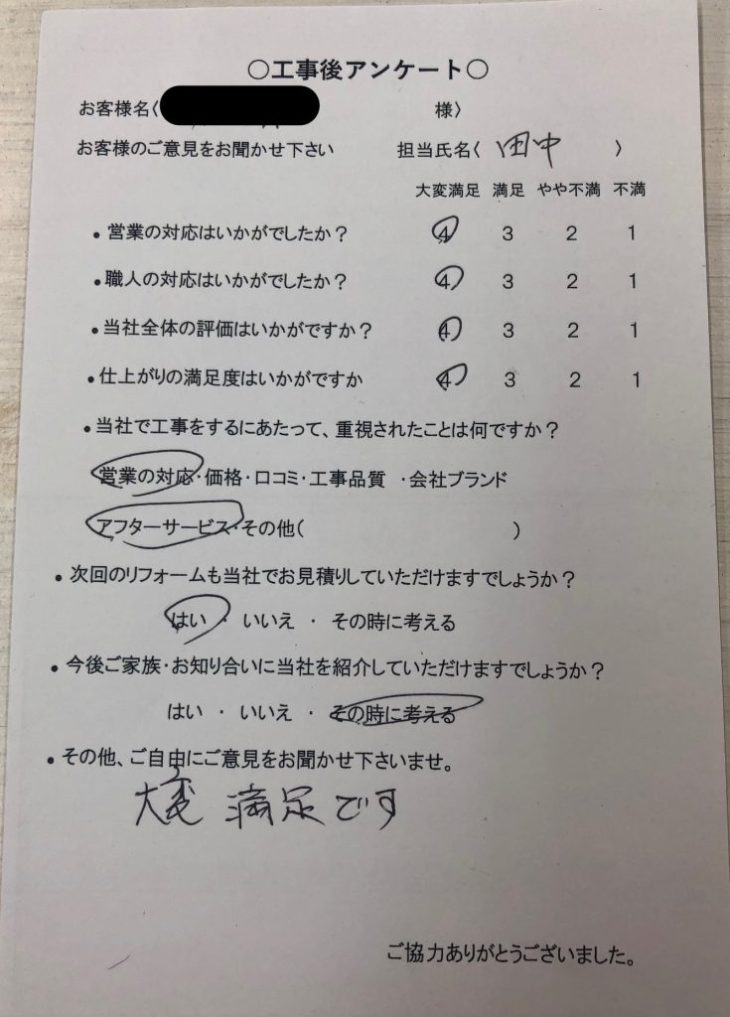 ○工事後アンケート○
お客様名〈 様〉
お客様のご意見をお聞かせ下さい 担当氏名〈 田中 〉
大変満足 満足 やや不満 不満
・営業の対応はいかがでしたか？ 4 3 2 1
・職人の対応はいかがでしたか？ 4 3 2 1
・当社全体の評価はいかがですか？ 4 3 2 1
・仕上がりの満足度はいかがですか 4 3 2 1
・当社で工事をするにあたって、重視されたことは何ですか？
営業の対応・価格・口コミ・工事品質 ・会社ブランド
アフターサービス・その他( )
・次回のリフォームも当社でお見積りしていただけますでしょうか？
はい ・ いいえ ・ その時に考える
・今後ご家族・お知り合いに当社を紹介していただけますでしょうか？
はい ・ いいえ ・ その時に考える
・その他、ご自由にご意見をお聞かせ下さいませ。
大変 満足です
ご協力ありがとうございました。